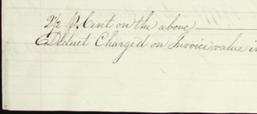 7½ P. Cent on the above
Deduct Charged on Invoice value